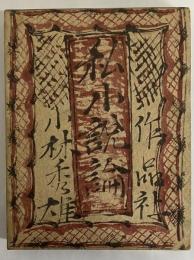 作品社
私小説論
小林秀雄